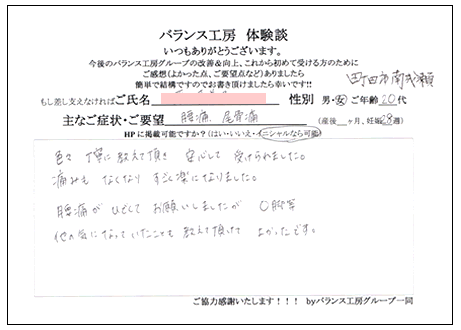 バランス工房 体験談
いつもありがとうございます。
今後のバランス工房グループの改善&向上、これから初めて受ける方のために
ご感想(よかった点、ご要望点など)ありましたら
簡単で結構ですのでお書き頂けましたら幸いです!!
町田市南成瀬
もし差し支えなければご氏名 性別 男・女 ご年齢 20代
主なご症状・ご要望 腰痛、尾骨痛 (産後 ヶ月、妊娠 28週)
HPに掲載可能ですか?(はい・いいえ・イニシャルなら可能)
色々 丁寧に教えて頂き 安心して 受けられました。
痛みも なくなり すごく楽になりました。
腰痛が ひどくて お願いしましたが O脚等
他の気になっていたことも 教えて頂けて よかったです。
ご協力感謝いたします!!! byバランス工房グループ一同